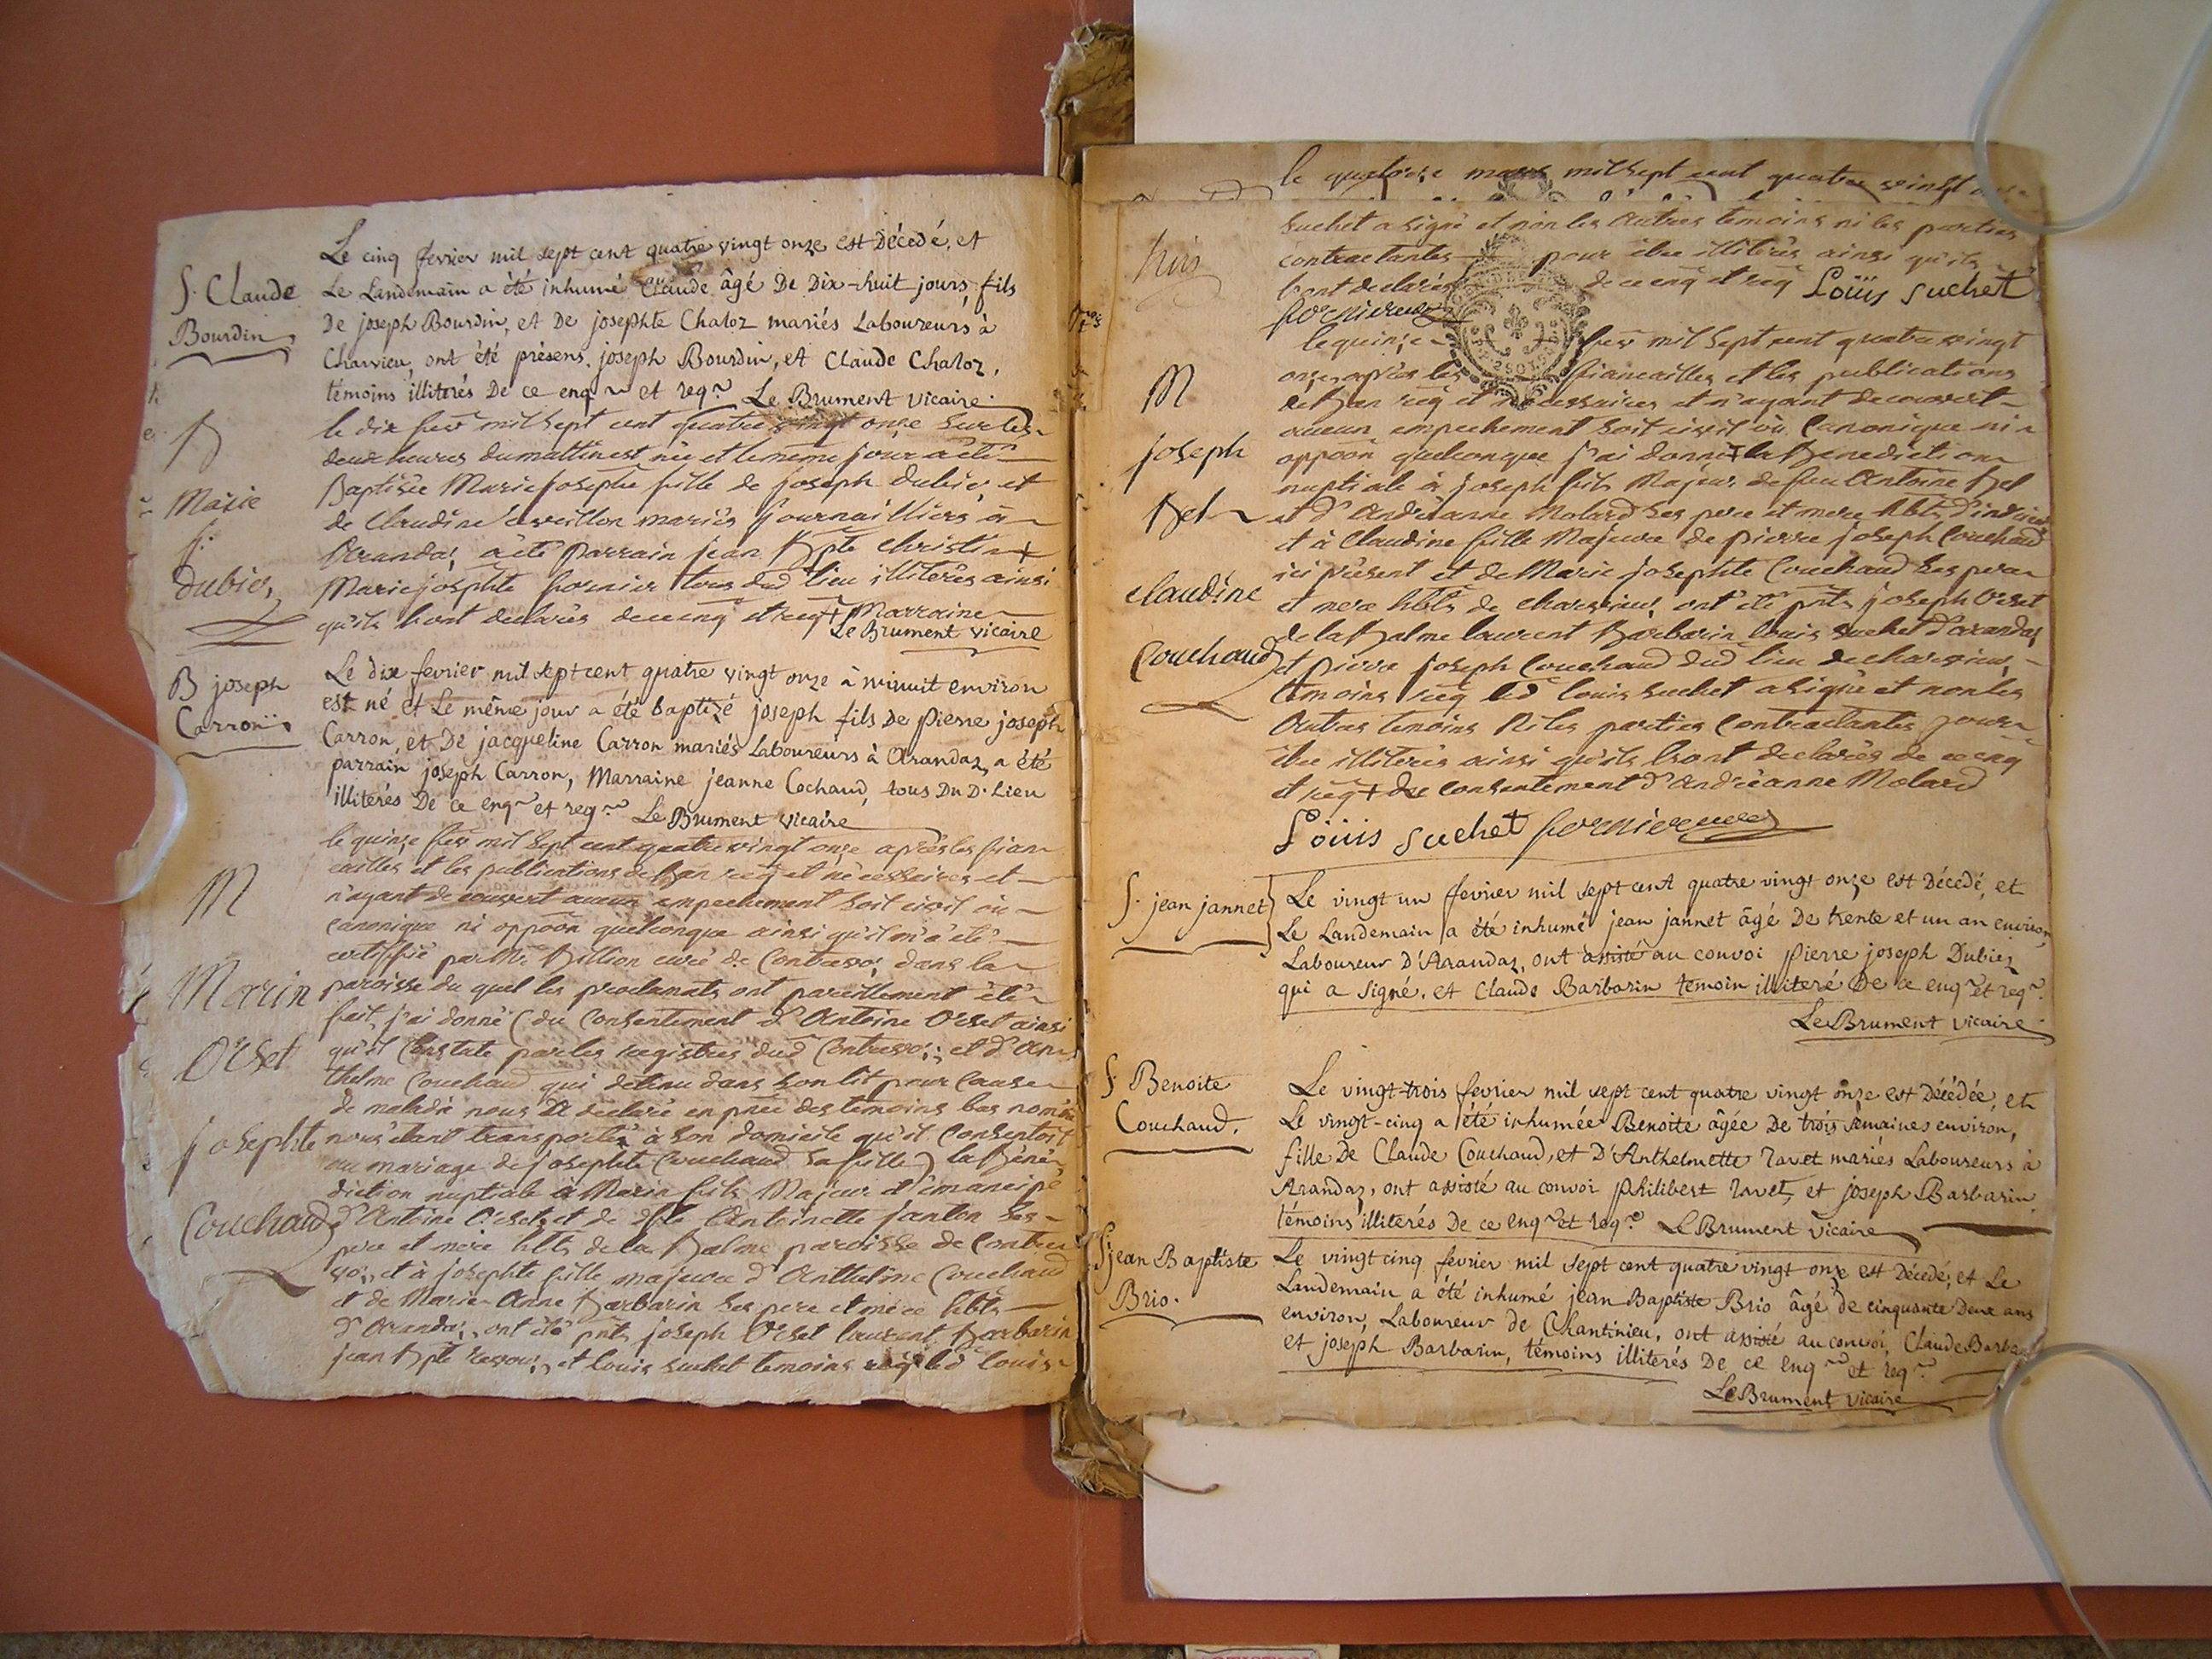 S. Claude
Bourdin,
Le cinq fevrier mil sept cent quatre vingt onze est Décedé, et
Le Landemain a été inhumé Claude âgé De Dix-huit jours, fils
De joseph Bourdin, et De josephte Chaloz mariés Laboureurs à
Charvieu, ont été présens joseph Bourdin, et Claude Chaloz,
témoins illiterés De ce enqr et reqr Le Brument vicaire.
B
Marie
j:
dubiez,
le dix fevr mil sept cent quatre vingt onze sur les
deux heures du mattin est née et le même jour a été
Baptisée Marie josephte fille de joseph dubiez et
de Claudine mariés journailliers à
Arandaz, a été parrain jean Bpte Christin +
Marie josephte fornier tous dud lieu illiterés ainsi
qu'ils l'ont declarés de ce enq et req + Marraine
Le Brument vicaire
B joseph
Carron.
Le dix fevrier mil sept cent quatre vingt onze à minuit environ
est né et Le même jour a été baptizé joseph fils De pierre joseph
Carron, et De jacqueline Carron mariés Laboureurs à Arandaz, a été
parrain joseph Carron, Marraine jeanne Cochaud, tous Du D. Lieu
illiterés De ce enqr et reqr Le Brument vicaire
M
Marin
Orset
josephte
Couchaud
le quinze fevr mil sept cent quatre vingt onze après les fian
cailles et les publications de Ban req et nécessaires et
n'ayant decouvert aucun empechement soit civil où
canonique ni oppoon quelconque ainsi qu'il m'a été
certiffié par Mr Billion curé de Contrevoz dans la
paroisse du quel les proclamats ont pareillement été
fait, j'ai donné (du Consentement d'Antoine Orset ainsi
qu'il Constate par les registres dud Contrevoz; et d'An
thelme Couchaud qui detenu dans son lit pour Cause
de maladie nous a declaré en pnce des temoins bas només
nous étant transportés à son domicile qu'il Consentoit
au mariage de josephte Couchaud sa fille) la Béné
diction nuptiale à Marin fils Majeur et émancipé
d'Antoine Orset, et de Antoinette janton ses
pere et mere hbts de la Balme paroisse de Contre
voz, et à josephte fille majeure d'Anthelme Couchaud
et de Marie-Anne Barbarin ses pere et mere hbts
d'Arandaz, ont été pnts joseph Orset laurent Barbarin
jean Bpte et louis suchet temoins req led louis
le quatorze mars mil sept cent quatre vingt onze
suchet a signé et non les Autres temoins ni les parties
contractantes pour être illiterés ainsi qu'ils
l'ont declarés de ce enq et req Loüis suchet
fornier curé
M
joseph
Bel
claudine
Couchaud
le quinze fevr mil sept cent quatre vingt
onze après les fiancailles et les publications
de Ban req et nécessaires et n'ayant decouvert
aucun empechement soit civil où Canonique ni
oppoon quelconque j'ai donné + la Bénediction
nuptiale à joseph fils Majeur de feu Antoine Bel
et d'Andréanne Molard ses pere et mere hbts d'indrieux
et à Claudine fille Majeure de pierre joseph Couchaud
ici présent et de Marie josephte Couchaud ses pere
et mere hbts de charvieu, ont été pnts joseph Orset
de la Balme laurent Barbarin louis suchet d'arandaz
et pierre joseph Couchaud dud lieu de charvieu,
temoins req led louis suchet a signé et non les
Autres temoins Ni les parties Contractantes pour
être illiterés ainsi qu'ils l'ont declarés de ce enq
et req + du consentement d'Andréanne Molard
Loüis suchet fornier curé
S. jean jannet
Le vingt un fevrier mil sept cent quatre vingt onze est Décedé, et
Le Landemain a été inhumé jean jannet âgé De trente et un an environ,
Laboureur D'Arandaz, ont assisté au convoi pierre joseph Dubiez
qui a signé, et Claude Barbarin temoin illiteré De ce enqr et reqr.
Le Brument vicaire
S. Benoite
Couchaud.
Le vingt-trois fevrier mil sept cent quatre vingt onze est Décédée, et
Le vingt-cinq a été inhumée Benoite âgée De trois semaines environ,
fille De Claude Couchaud, et D'Anthelmette ravet mariés Laboureurs à
Arandaz, ont assisté au convoi philibert ravet, et joseph Barbarin,
témoins illiterés De ce enqr et reqr. Le Brument vicaire
S. jean Baptiste
Brio.
Le vingt cinq fevrier mil sept cent quatre vingt onze est Décedé, et Le
Landemain a été inhumé jean Baptiste Brio âgé de cinquante Deux ans
environ, Laboureur de Chantinieu, ont assisté au convoi, Claude Barba
et joseph Barbarin, témoins illiterés De ce enqr et reqr.
Le Brument vicaire